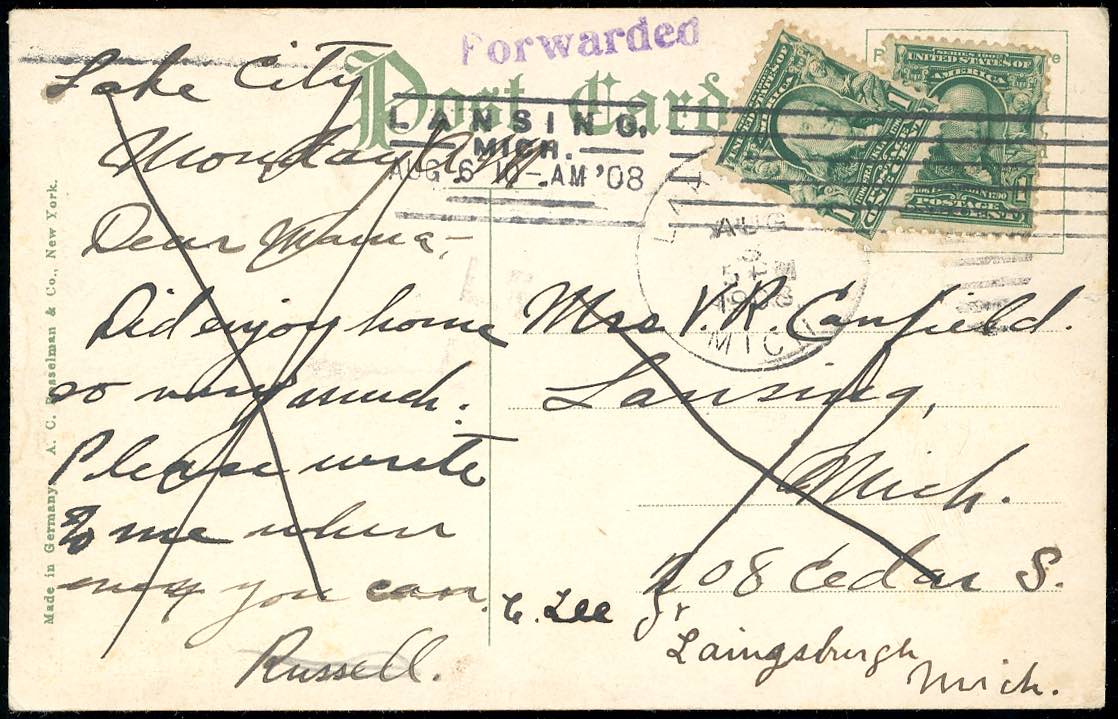 Forwarded
Post Card
LANSING,
MICH.
AUG 6 10-AM '08
AUG
5
1908
MICH
SERIES 1902
UNITED STATES OF
AMERICA
POSTAGE
1 CENT 1
Lake City
Monday PM
Dear Mama,-
Did enjoy home
so very much.
Please write
to me when
ever you can.
Russell.
Mrs V. R. Canfield.
Lansing,
Mich.
208 Cedar S.
c. Lee Jr
Laingsburgh
Mich.
Made in Germany. A. C. Bosselman & Co., New York.